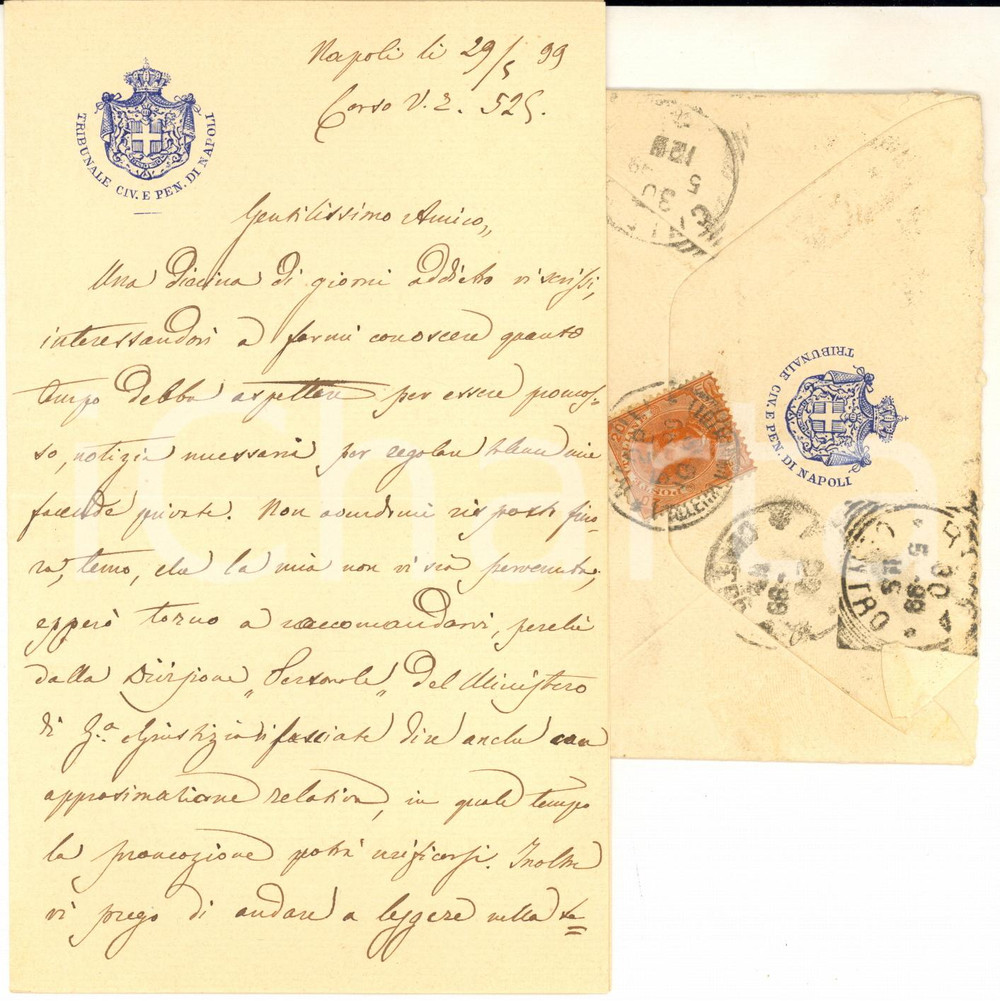 Napoli li 29/5 99
Corso V. E. 525.
TRIBUNALE CIV. E PEN. DI NAPOLI
Gentilissimo Amico,,
Una diecina di giorni addietro vi scrissi,
interessandovi a farmi conoscere quanto
tempo debba aspettare per essere promos-
so, notizia necessaria per regolare talune mie
faccende private. Non avendomi risposto fino-
ra, temo, che la mia non vi sia pervenuta,
epperò torno a raccomandarvi, perchè
dalla Divisione "Personale" del Ministero
di G.a Giustizia vi facciate dire anche con
approssimazione relativa, in quale tempo
la promozione potrà verificarsi. Inoltre
vi prego di andare a leggere nella
TRIBUNALE CIV. E PEN. DI NAPOLI
iCharta